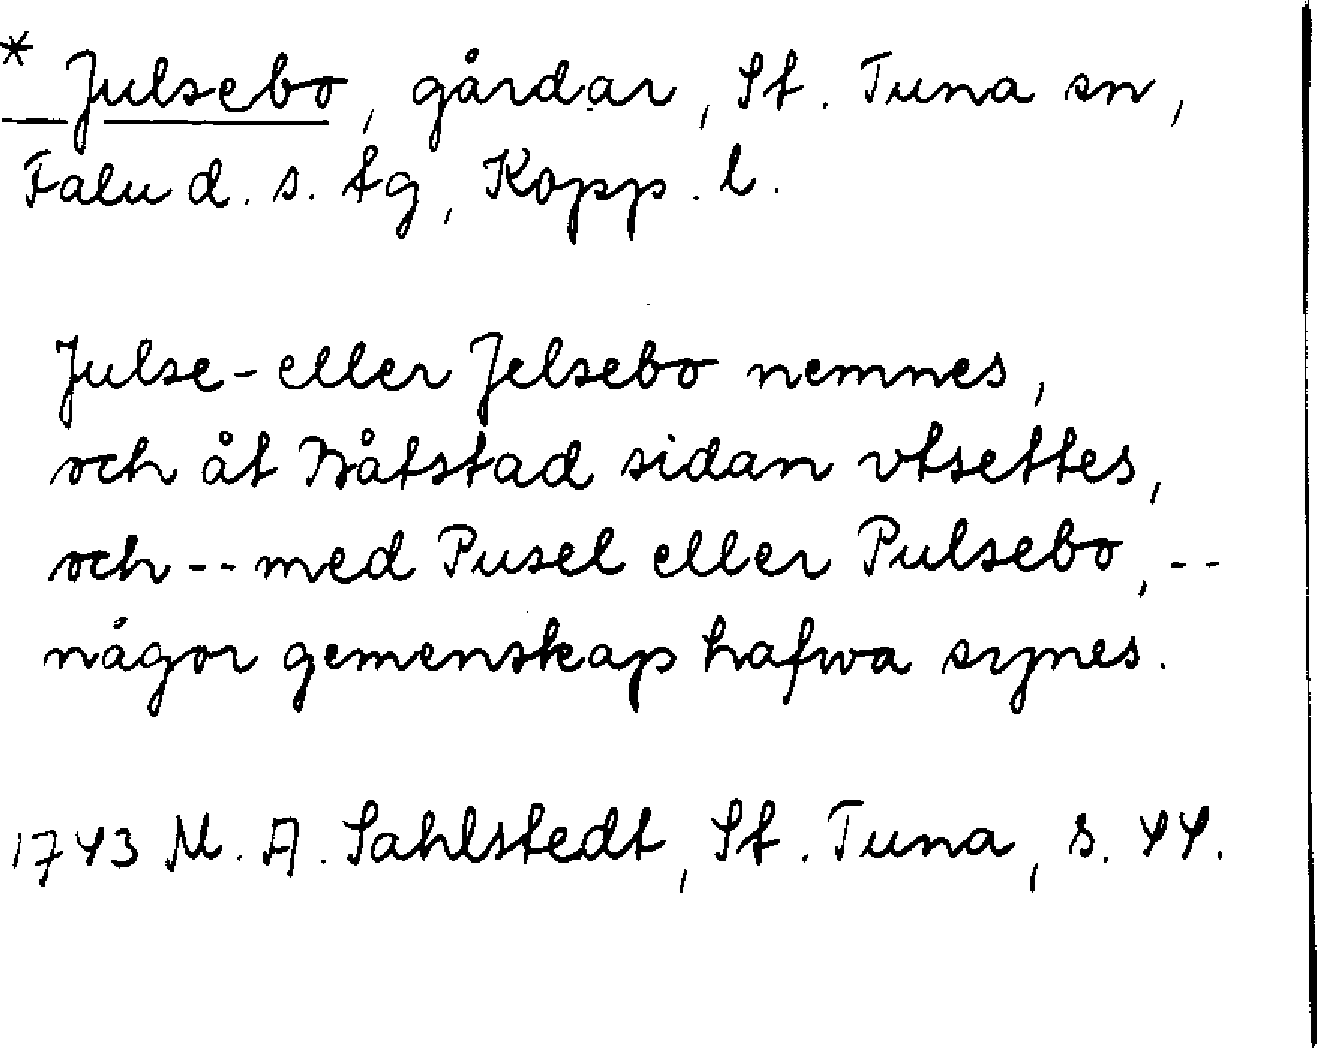 * Julsebo, gårdar, St. Tuna sn,
Falu d. s. tg, Kopp. l.
Julse- eller Jelsebo nemnes,
och åt Båtstad sidan vtsettes,
och -- med Pusel eller Pulsebo, --
någor gemenskap hafwa synes.
1743 M. A. Sahlstedt, St. Tuna, s. 44.